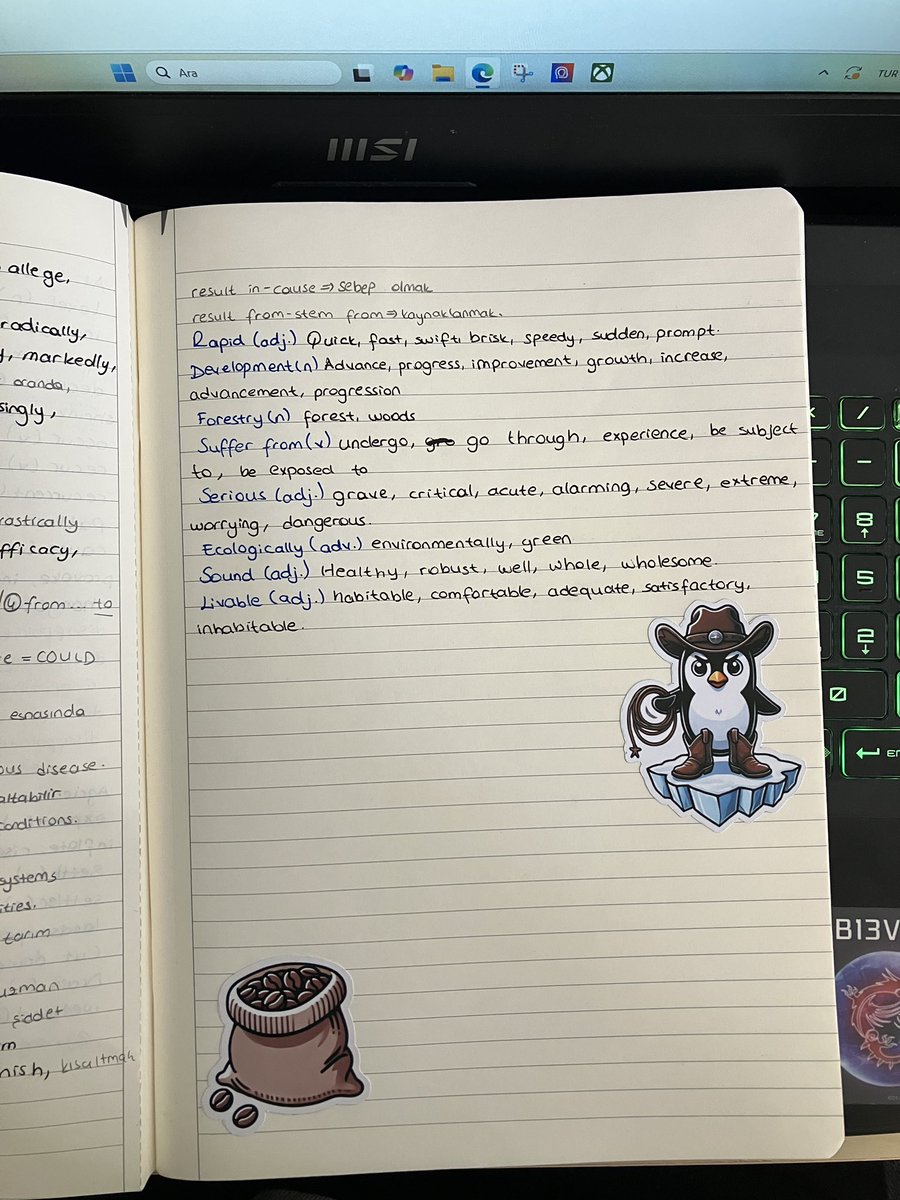 Ara
TUR
msi
allege,
radically,
markedly,
oranda,
singly,
rastically
fficacy,
④ from... to
e = COULD
esnasında
ous disease.
altabilir
conditions.
systems
ities.
tarım
uzman
şiddet
m
nish, kısaltmak
result in-cause ⇒ sebep olmak
result from-stem from ⇒ kaynaklanmak.
Rapid (adj.) Quick, fast, swift, brisk, speedy, sudden, prompt.
Development(n) Advance, progress, improvement, growth, increase,
advancement, progression
Forestry(n) forest, woods
Suffer from(v) undergo, go through, experience, be subject
to, be exposed to
Serious (adj.) grave, critical, acute, alarming, severe, extreme,
worrying, dangerous.
Ecologically (adv.) environmentally, green
Sound (adj.) Healthy, robust, well, whole, wholesome.
Livable (adj.) habitable, comfortable, adequate, satisfactory,
inhabitable.
/
-
8
5
2
0
B13V